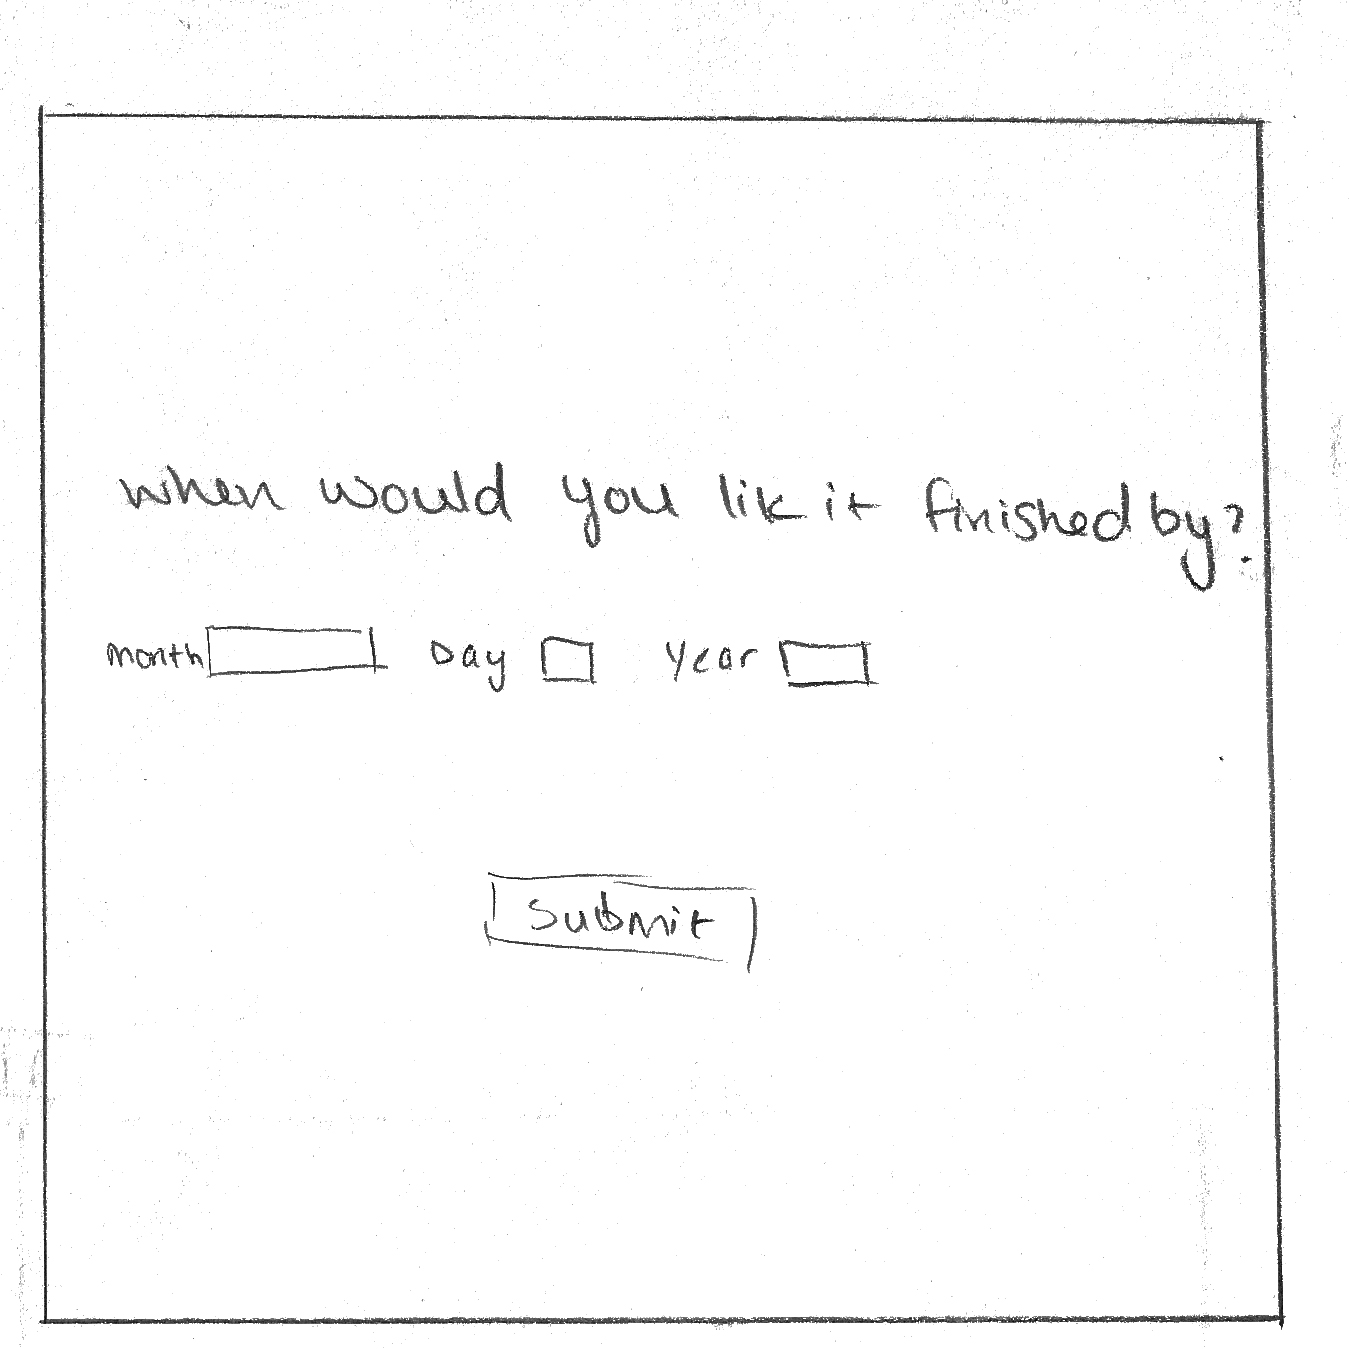 when would you lik it finished by?
month Day Year
Submit